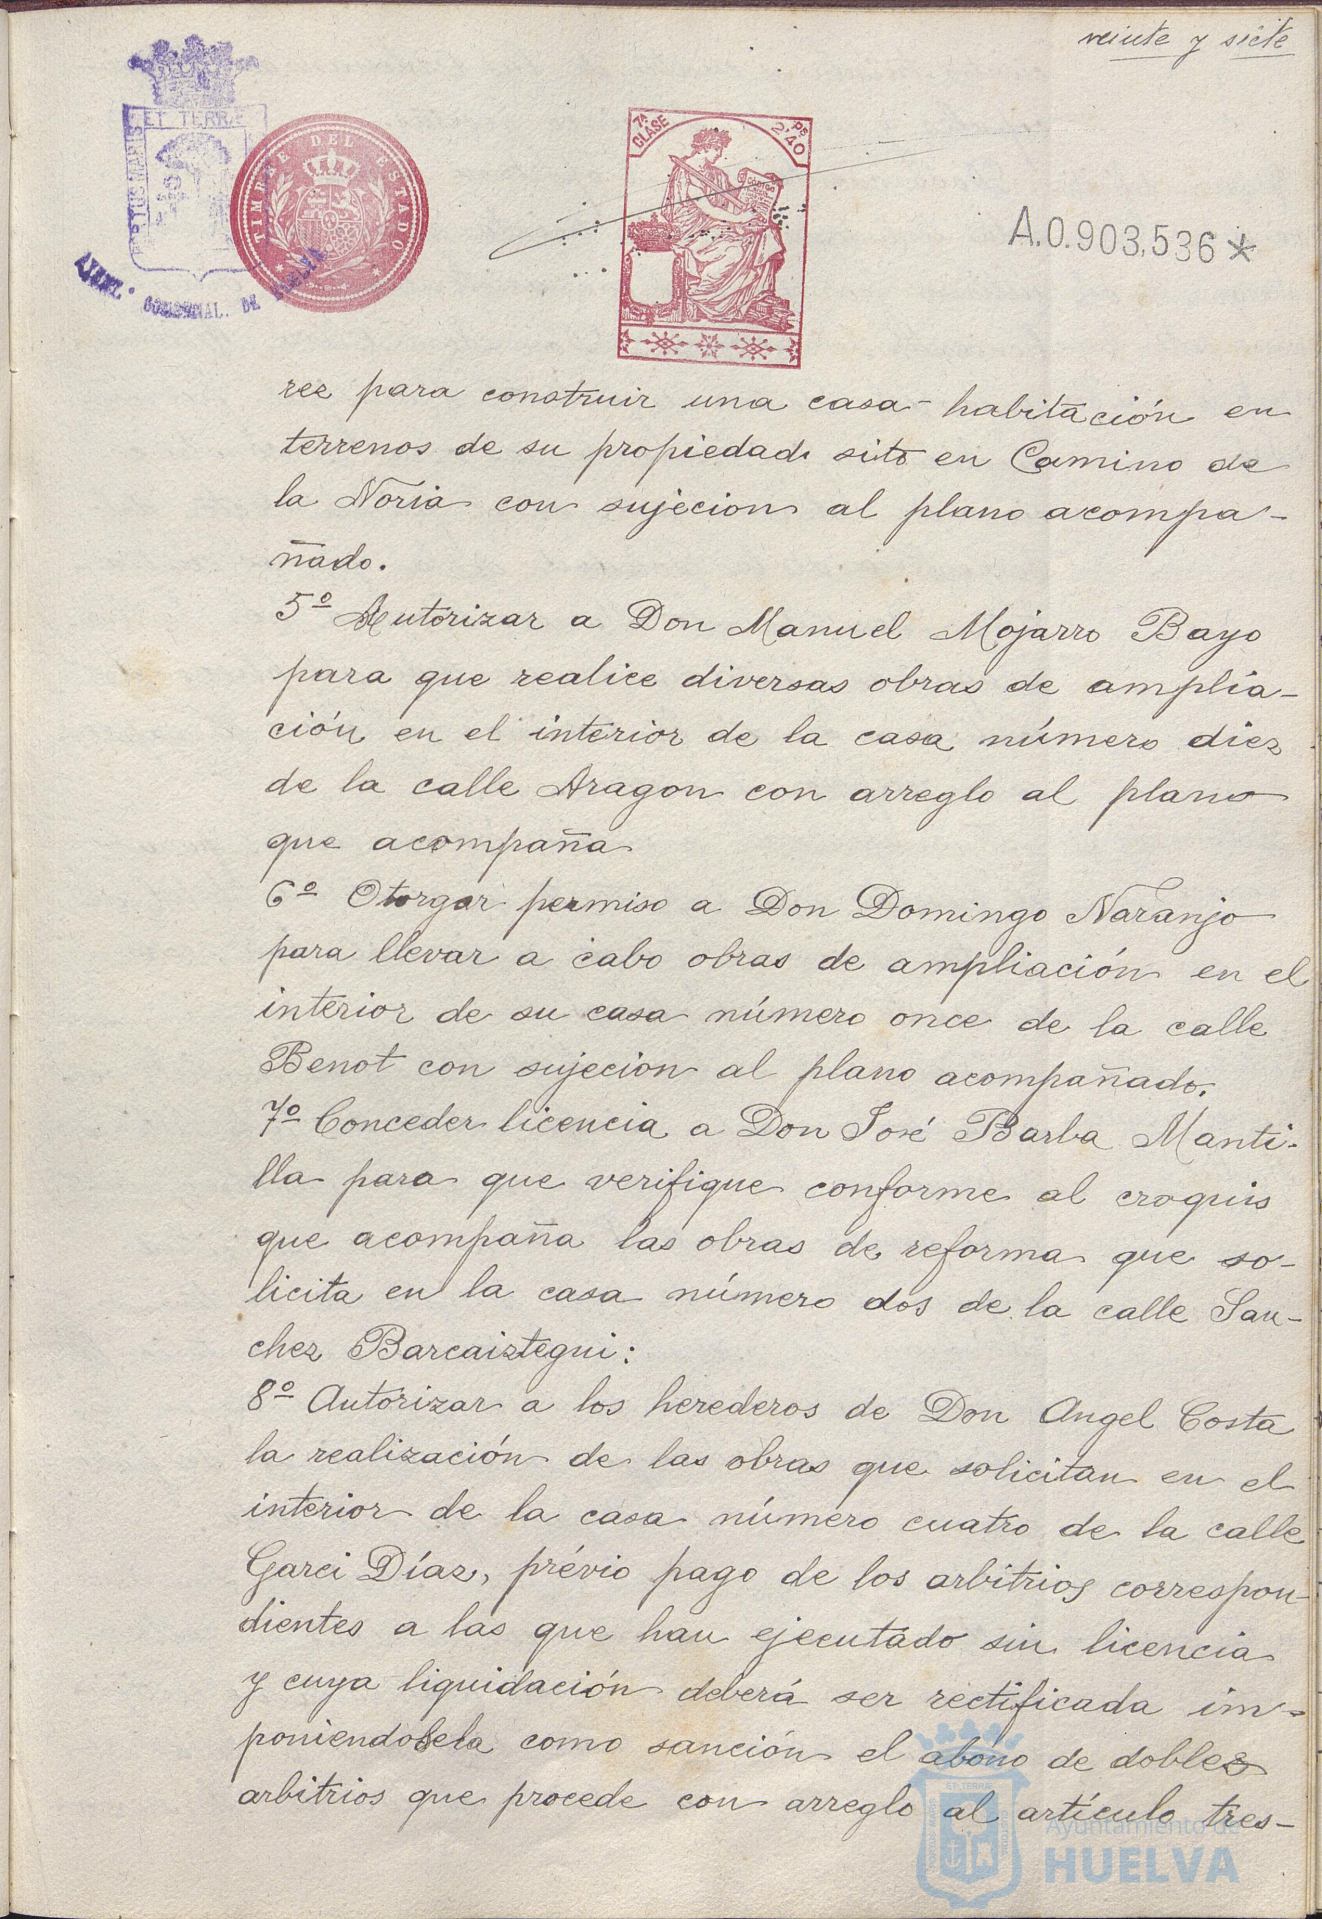 veinte y siete
ET TERRÆ
TIMBRE DEL ESTADO
7ª CLASE
2'40 Ps
A.0.903,536*
AYUNT.
DE
rez para construir una casa-habitación en
terrenos de su propiedad sito en Camino de
la Noria con sujecion al plano acompa-
ñado.
5º Autorizar a Don Manuel Mojarro Bayo
para que realice diversas obras de amplia-
ción en el interior de la casa número diez
de la calle Aragon con arreglo al plano
que acompaña
6º Otorgar permiso a Don Domingo Naranjo
para llevar a cabo obras de ampliación en el
interior de su casa número once de la calle
Benot con sujecion al plano acompañado.
7º Conceder licencia a Don José Barba Manti-
lla para que verifique conforme al croquis
que acompaña las obras de reforma que so-
licita en la casa número dos de la calle San-
chez Barcaiztegui:
8º Autorizar a los herederos de Don Angel Costa
la realización de las obras que solicitan en el
interior de la casa número cuatro de la calle
Garci Díaz, prévio pago de los arbitrios correspon-
dientes a las que han ejecutado sin licencia
y cuya liquidación deberá ser rectificada im-
poniendosela como sanción el abono de dobles
arbitrios que procede con arreglo al artículo tres-
Ayuntamiento de
HUELVA